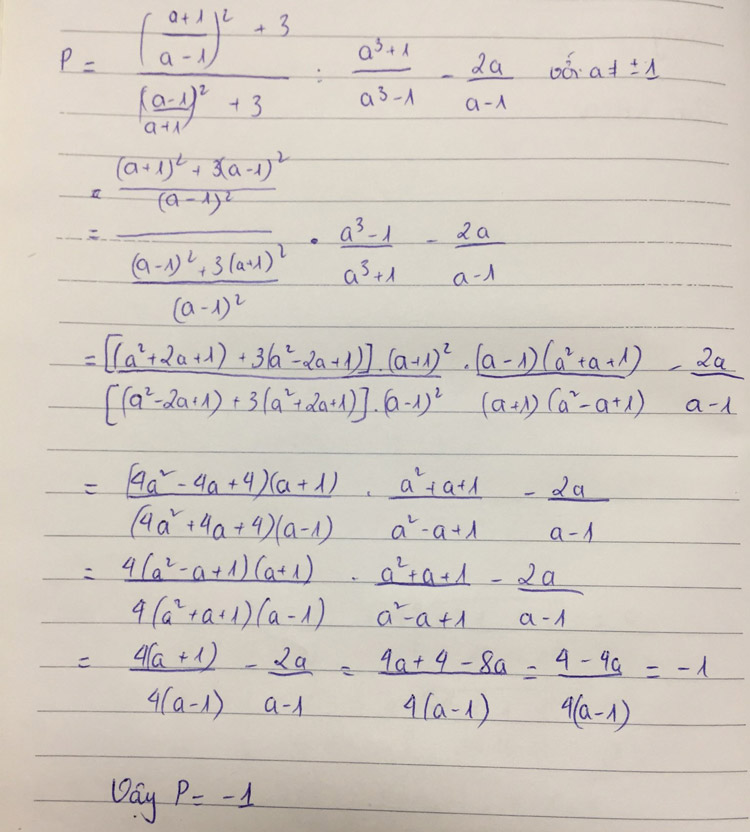 P = (((a+1)/(a-1))² + 3)/(((a-1)/(a+1))² + 3) : (a³+1)/(a³-1) - 2a/(a-1) với a ≠ ±1
= (((a+1)² + 3(a-1)²)/(a-1)²)/(((a-1)² + 3(a+1)²)/(a-1)²) · (a³-1)/(a³+1) - 2a/(a-1)
= [(a²+2a+1) + 3(a²-2a+1)].(a+1)²/[(a²-2a+1) + 3(a²+2a+1)].(a-1)² · (a-1)(a²+a+1)/(a+1)(a²-a+1) - 2a/(a-1)
= (4a²-4a+4)(a+1)/(4a²+4a+4)(a-1) · (a²+a+1)/(a²-a+1) - 2a/(a-1)
= 4(a²-a+1)(a+1)/4(a²+a+1)(a-1) · (a²+a+1)/(a²-a+1) - 2a/(a-1)
= 4(a+1)/4(a-1) - 2a/(a-1) = (4a+4-8a)/4(a-1) = (4-4a)/4(a-1) = -1
Vậy P = -1